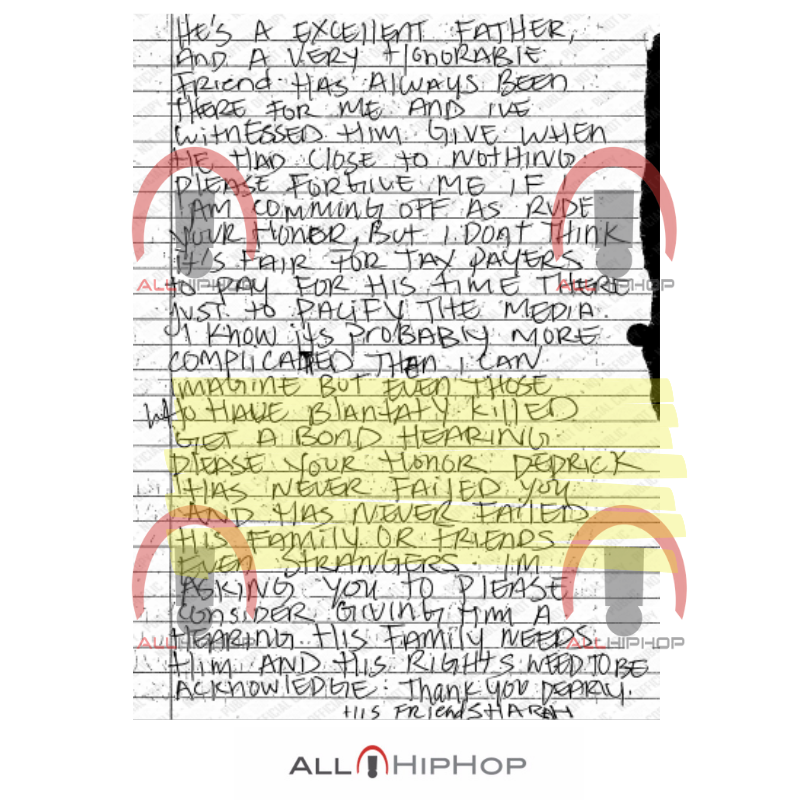 HE'S A EXCELLENT FATHER,
AND A VERY HONORABLE
FRIEND HAS ALWAYS BEEN
THERE FOR ME AND IVE
WITNESSED HIM GIVE WHEN
HE HAD CLOSE TO NOTHING.
PLEASE FORGIVE ME IF I
AM COMMING OFF AS RUDE
YOUR HONOR, BUT I DONT THINK
IT'S FAIR FOR TAX PAYERS
TO PAY FOR HIS TIME THERE
JUST TO PACIFY THE MEDIA.
I KNOW ITS PROBABLY MORE
COMPLICATED THEN I CAN
IMAGINE BUT EVEN THOSE
TO HAVE BLANTATY KILLED
GET A BOND HEARING
PLEASE YOUR HONOR DEDRICK
HAS NEVER FAILED YOU
AND HAS NEVER FAILED
HIS FAMILY OR FRIENDS
EVEN STRANGERS. I'M
ASKING YOU TO PLEASE
CONSIDER GIVING HIM A
HEARING. HIS FAMILY NEEDS
HIM, AND HIS RIGHTS NEED TO BE
ACKNOWLEDGE. THANK YOU DEARLY.
HIS FRIEND SHARAH
ALLHIPHOP
ALLHIPHOP
ALLHIPHOP
ALLHIPHOP
ALL HIPHOP